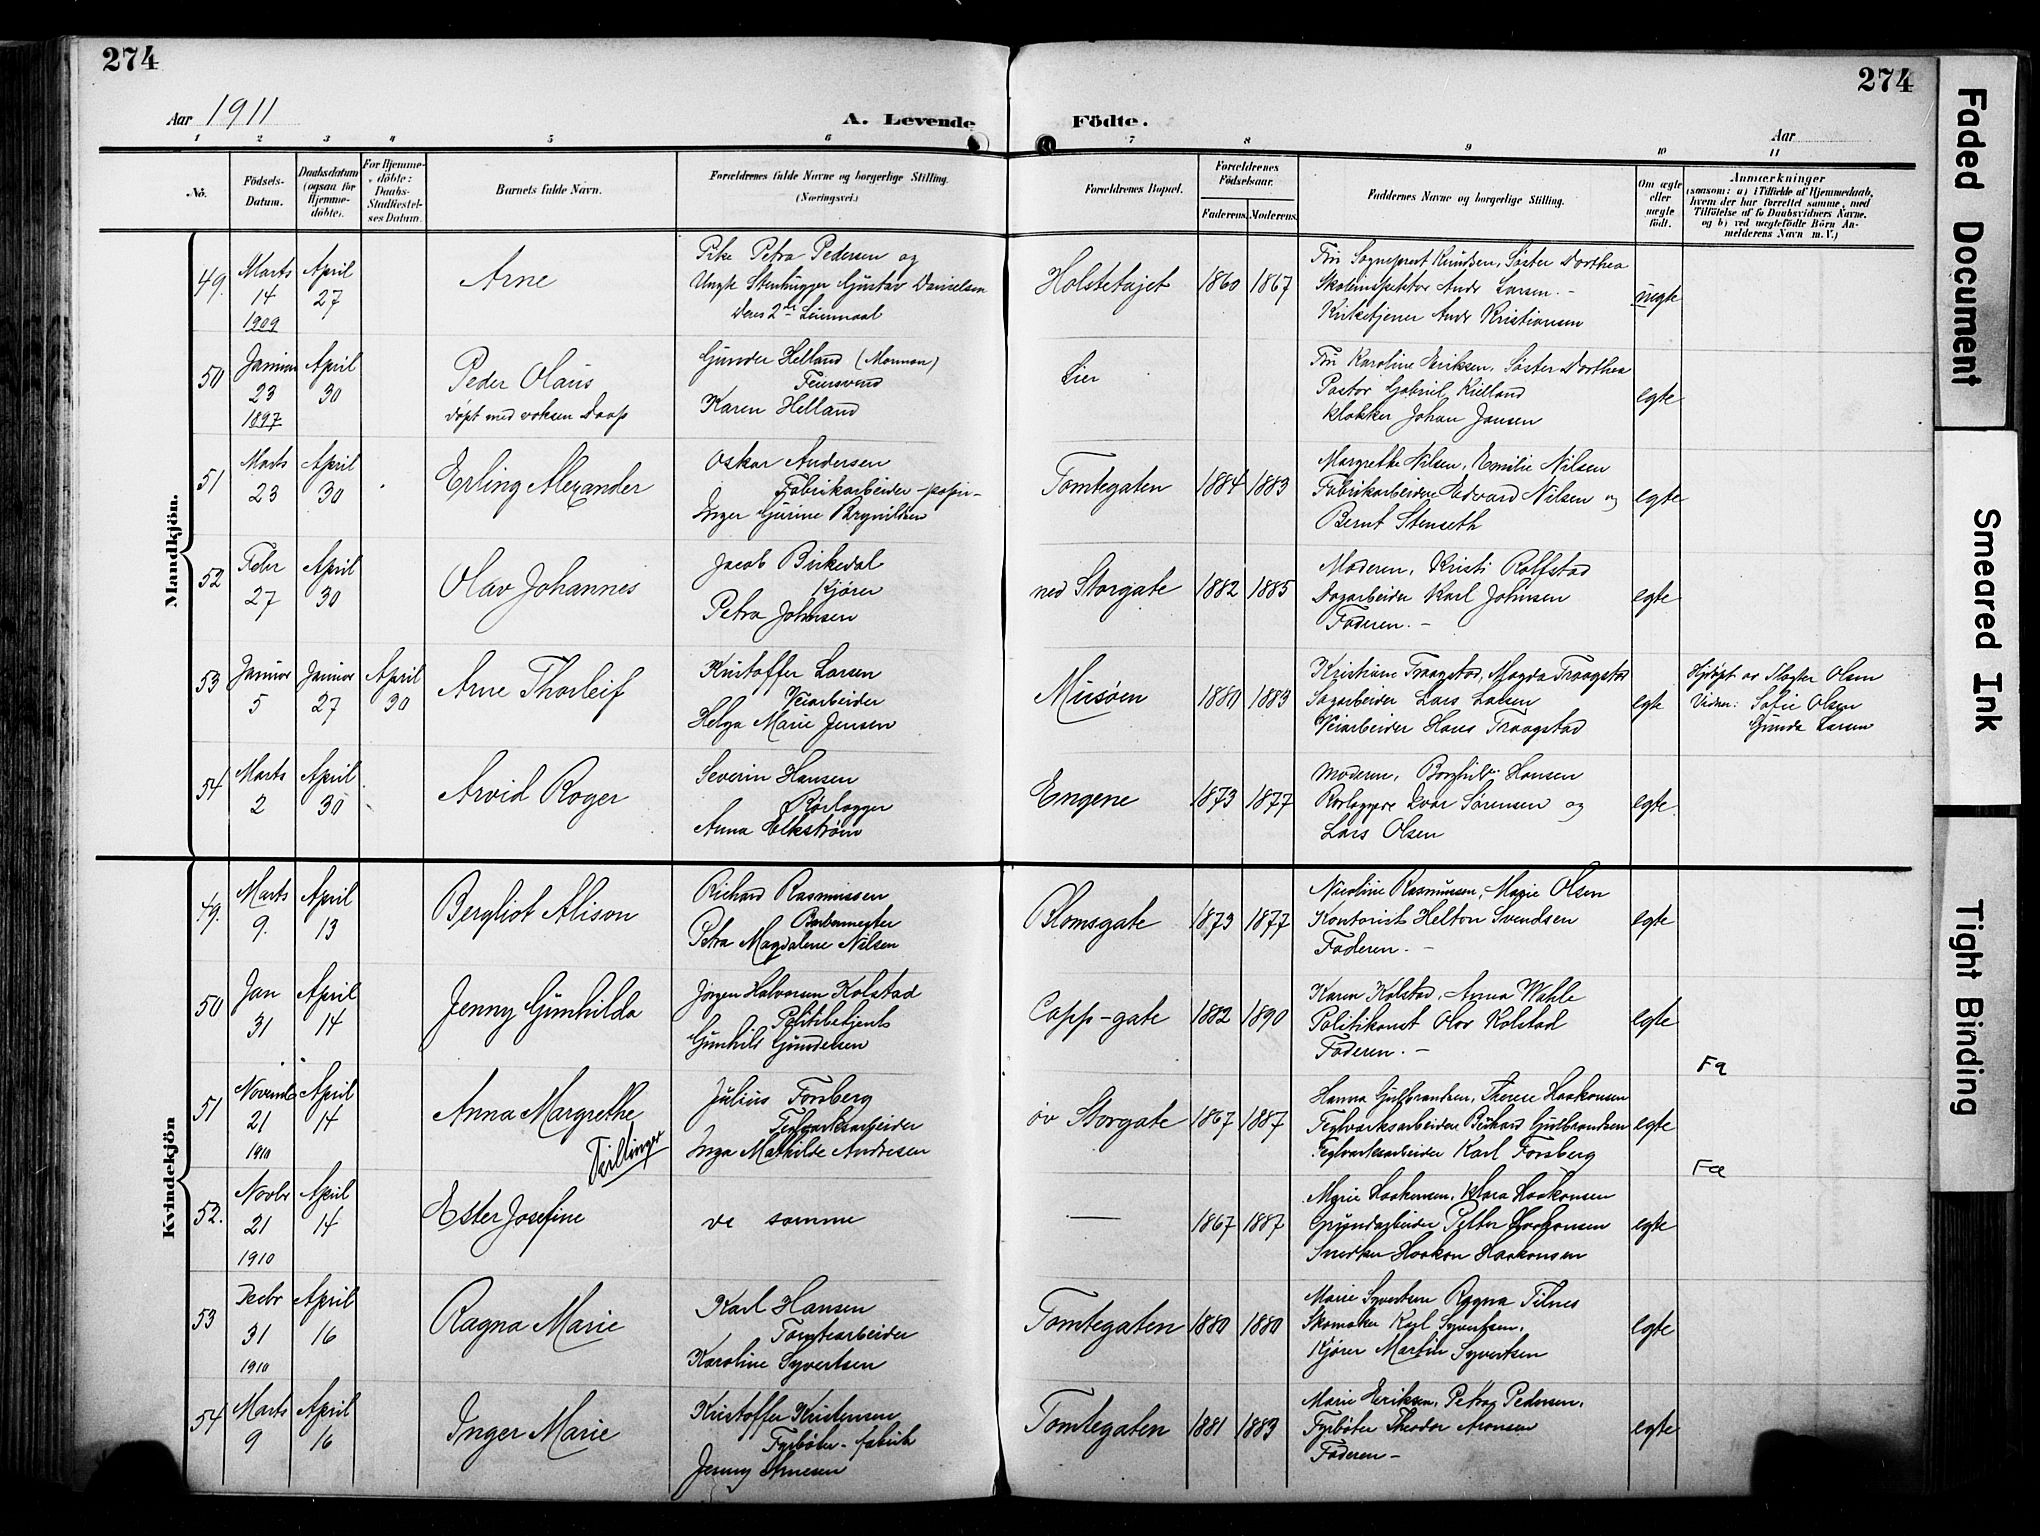 274
274
Aar 1911
A. Levende Födte.
Aar
1 2 3 4 5 6 7 8 9 10 11
Nö.
Födsels-Datum.
Daabsdatum (ogsaa for Hjemme-döbte).
For Hjemme-döbte: Daabs-Stadfæstel-ses Datum.
Barnets fulde Navn.
Forældrenes fulde Navne og borgerlige Stilling. (Næringsvei.)
Forældrenes Bopæl.
Forældrenes Födselsaar.
Faderens. Moderens.
Faddernes Navne og borgerlige Stilling.
Om ægte eller uægte födt.
Anmærkninger
(saasom: a) i Tilfælde af Hjemmedaab, hvem der har forrettet samme, med Tilföielse af to Daabsvidners Navne, og b) ved uægtefödte Börn An-melderens Navn m. V.)
Mandkjön.
49. Marts 14 1909
April 27
Arne
Pike Petra Pedersen og
Ungk Stenhugger Gustav Danielsen
Deres 2det Leiermaal
1860 1867
Fru Sogneprest Knudsen, Søster Dorthea
Skoleinspektør Andr Larsen. -
Kirketjener Andr Kristiansen
uegte
50 Januar 23 1897
April 30
Peder Olaus
døpt med voksen Daap
Gunder Helland (Mormon)
Karen Helland
Lier
Fru Karoline Eriksen, Søster Dorthea
Pastor Gabriel Kielland
Klokker Johan Jansen
egte
51 Marts 23
April 30
Erling Alexander
Oskar Andersen
Fabrikarbeider - papir-
Inger Gurine Brynildsen
Tomtegaten
1884 1883
Margrethe Nilsen, Emilie Nilsen
Fabrikarbeidere Edvard Nilsen og
Bernt Stenseth
egte
52 Febr 27
April 30
Olav Johannes
Jacob Birkedal
Kjører
Petra Johnsen
ned Storgate
1882 1885
Moderen, Kristi Rolfstad
Dagarbeider Karl Johnsen
Faderen. -
egte
53 Januar 5
Januar 27
April 30
Arne Thorleif
Kristoffer Larsen
Veiarbeider
Helga Marie Jensen
Musøen
1880 1883
Kristiane Traagstad, Magda Traagstad
Sagarbeider Lars Larsen
Veiarbeider Hans Traagstad
egte
Hjdøpt av Slagter Olsen
Vidner: Sofie Olsen
Gunda Larsen
54 Marts 2
April 30
Arvid Roger
Severin Hansen
Rørlægger
Anna Elkstrøm
Engene
1873 1877
Moderen, Borghild Hansen
Rørlæggere Ivar Sørensen og
Lars Olsen
egte
Kvindekjön
49. Marts 9.
April 13
Bergliot Alison
Richard Rasmussen
Petra Magdalene Nilsen
Blomsgate
1873 1877
Nicoline Rasmussen, Marie Olsen
Kontorist Helton Svendsen
Faderen. -
egte
50 Jan 31
April 14
Jenny Gunhilda
Jørgen Halvorsen Kolstad
Politibetjent
Gunhild Gundersen
Capp-gate
1882 1890
Karen Kolstad, Anna Wahle
Politikonst Olav Kolstad
Faderen. -
egte
51 Novemb 21 1910
April 14
Anna Margrethe
Tvillinger
Julius Forsberg
Teglverksarbeider
Inga Mathilde Andresen
øv Storgate
1867 1887
Hanna Gulbrandsen, Therese Haakonsen
Teglverksarbeidere Rikard Gulbrandsen
Teglverksarbeider Karl Forsberg
egte
Fa
52. Novbr 21 1910
April 14
Ester Josefine
de samme
—
1867 1887
Marie Haakonsen, Klara Haakonsen
Grundarbeider Petter Haakonsen
Snedker Haakon Haakonsen
egte
Fa
53 Decbr 31 1910
April 16
Ragna Marie
Karl Hansen
Tomtearbeider
Karoline Syvertsen
Tomtegaten
1880 1880
Marie Syvertsen Ragna Tilnes
Skomaker Karl Syvertsen,
Kjører Martin Syvertsen
egte
54 Marts 9
April 16
Inger Marie
Kristoffer Kristensen
Fyrbøter - fabrik
Jenny Arnesen
Tomtegaten
1881 1883
Marie Eriksen, Petra Pedersen,
Fyrbøter Theodor Aronsen
Faderen -
egte
Faded Document
Smeared Ink
Tight Binding